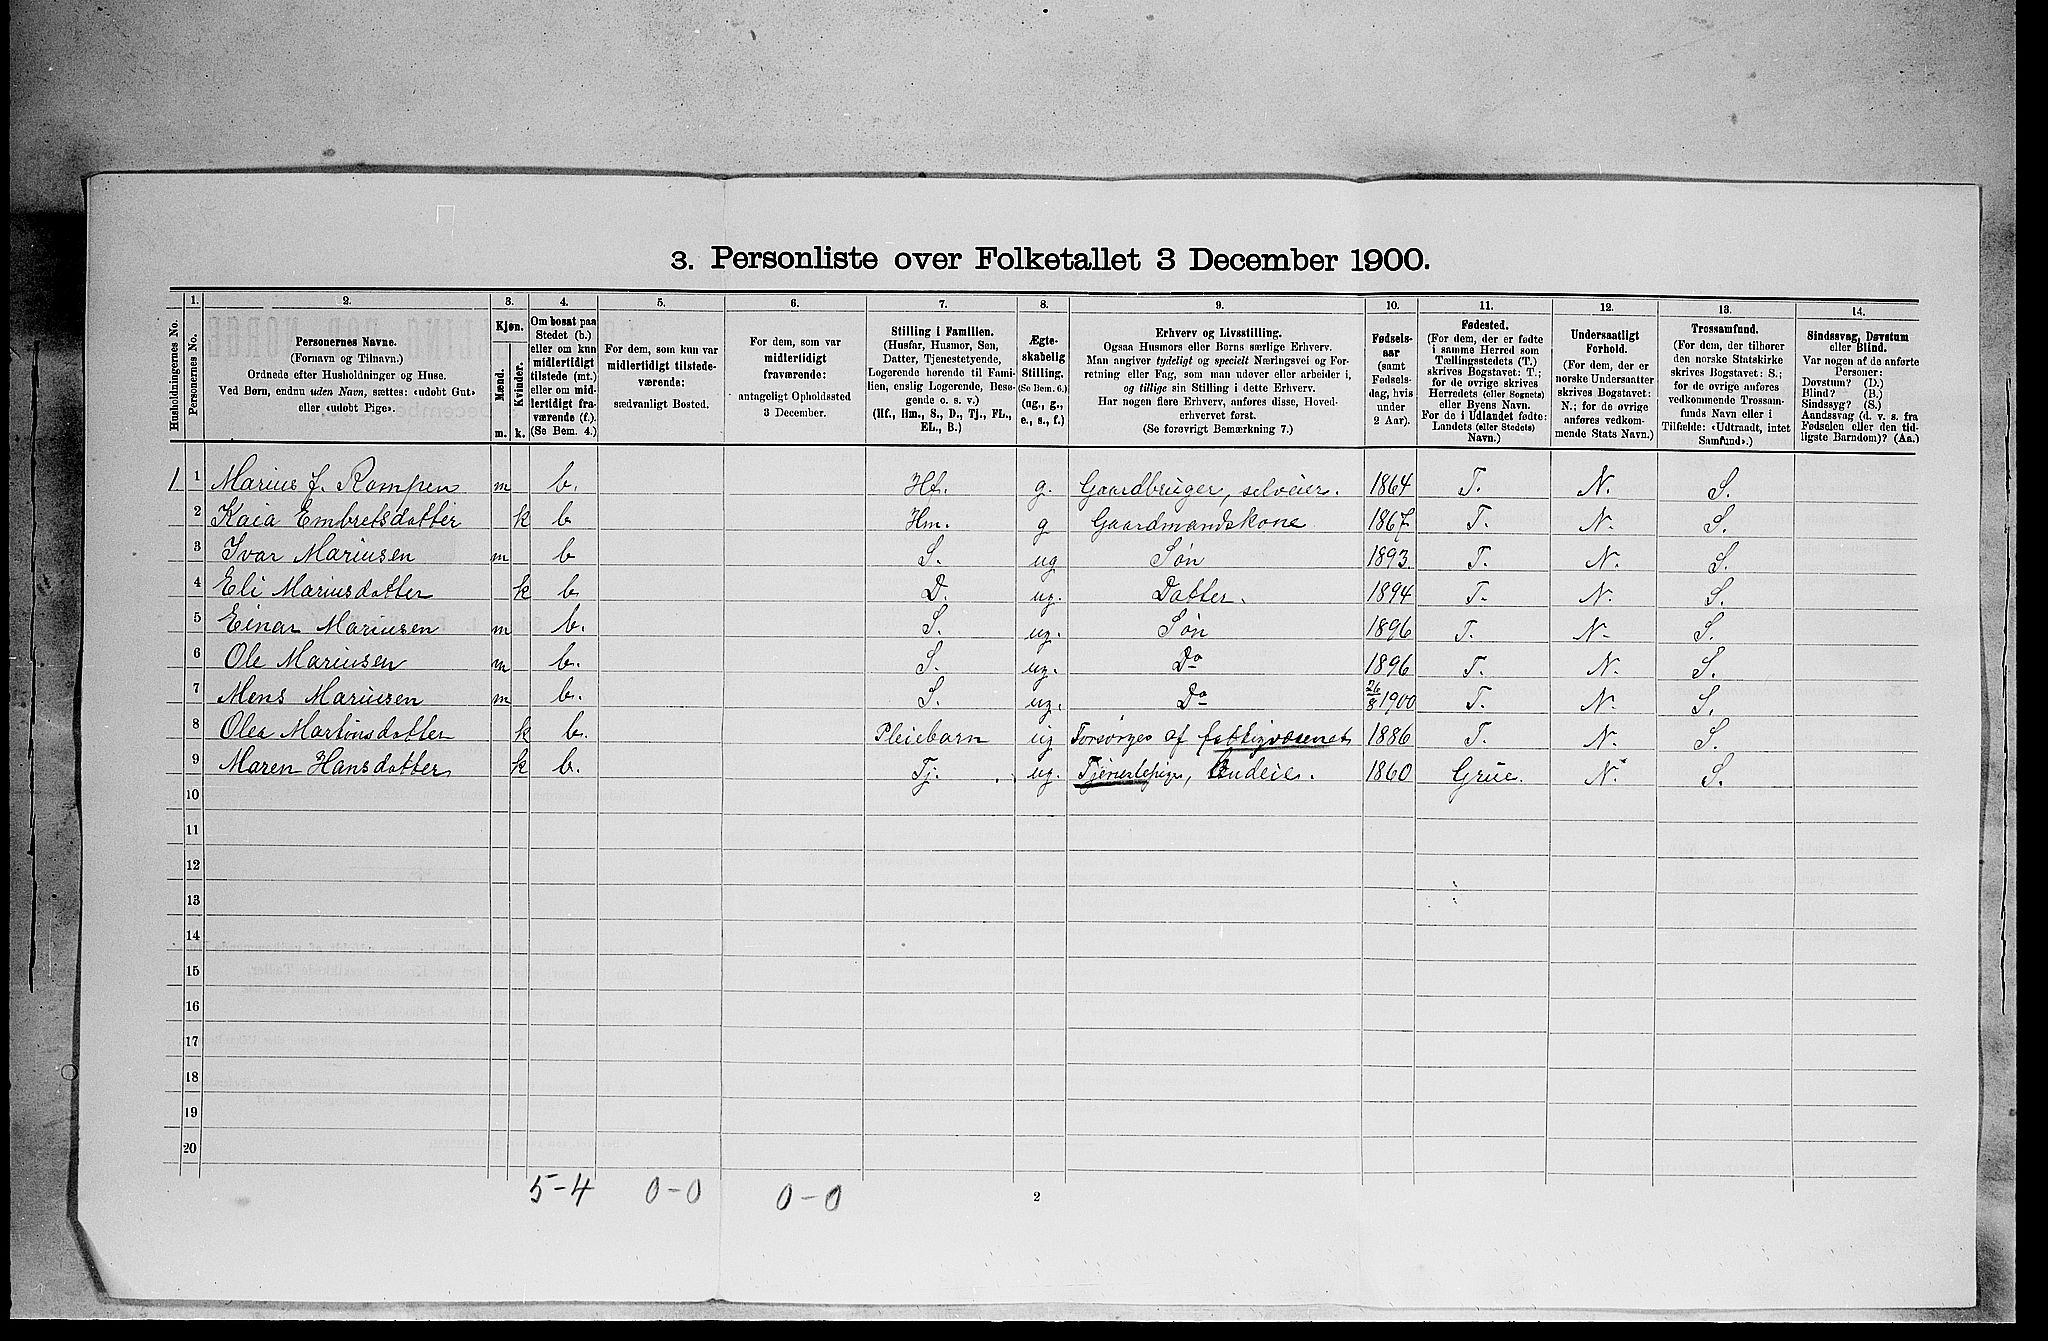 3. Personliste over Folketallet 3 December 1900.
Husholdningernes No.
1.
Personernes No.
2.
Personernes Navne.
(Fornavn og Tilnavn.)
Ordnede efter Husholdninger og Huse.
Ved Børn, endnu uden Navn, sættes: «udøbt Gut»
eller «udøbt Pige».
3.
Kjøn.
Mænd.
Kvinder.
m. k.
4.
Om bosat paa
Stedet (b.)
eller om kun
midlertidigt
tilstede (mt.)
eller om mid-
lertidigt fra-
værende (f.).
(Se Bem. 4.)
5.
For dem, som kun var
midlertidigt tilstede-
værende:
sædvanligt Bosted.
6.
For dem, som var
midlertidigt
fraværende:
antageligt Opholdssted
3 December.
7.
Stilling i Familien.
(Husfar, Husmor, Søn,
Datter, Tjenestetyende,
Logerende hørende til Fami-
lien, enslig Logerende, Besø-
gende o. s. v.)
(Hf., Hm., S., D., Tj., FL.,
EL., B.)
8.
Ægte-
skabelig
Stilling.
(Se Bem. 6.)
(ug., g.,
e., s., f.)
9.
Erhverv og Livsstilling.
Ogsaa Husmors eller Børns særlige Erhverv.
Man angiver tydeligt og specielt Næringsvei og For-
retning eller Fag, som man udøver eller arbeider i,
og tillige sin Stilling i dette Erhverv.
Har nogen flere Erhverv, anføres disse, Hoved-
erhvervet først.
(Se forøvrigt Bemærkning 7.)
10.
Fødsels-
aar
(samt
Fødsels-
dag, hvis
under
2 Aar).
11.
Fødested.
(For dem, der er fødte
i samme Herred som
Tællingsstedets (T.)
skrives Bogstavet: T.;
for de øvrige skrives
Herredets (eller Sognets)
eller Byens Navn.
For de i Udlandet fødte:
Landets (eller Stedets)
Navn.)
12.
Undersaatligt
Forhold.
(For dem, der er
norske Undersaatter
skrives Bogstavet:
N.; for de øvrige
anføres vedkom-
mende Stats Navn.)
13.
Trossamfund.
(For dem, der tilhører
den norske Statskirke
skrives Bogstavet: S.;
for de øvrige anføres
vedkommende Trossam-
funds Navn eller i
Tilfælde: «Udtraadt, intet
Samfund».)
14.
Sindssvag, Døvstum
eller Blind.
Var nogen af de anførte
Personer:
Døvstum? (D.)
Blind? (B.)
Sindssyg? (S.)
Aandssvag (d. v. s. fra
Fødselen eller den tid-
ligste Barndom)? (Aa.)
1 1 Marius J. Rompen m b. Hf. g. Gaardbruger, selveier. 1864 T. N. S.
2 Kaia Embretsdatter k b Hm. g Gaardmandskone 1867 T. N. S.
3 Ivar Mariusen m b S. ug Søn 1893. T. N. S.
4 Eli Mariusdatter k b D. ug. Datter. 1894 T. N. S.
5 Einar Mariusen m b. S. ug. Søn 1896 T. N. S.
6 Ole Mariusen m b. S. ug. Do 1896 T. N. S.
7 Mens Mariusen m b. S. ug. Do 26/8 1900 T. N. S.
8 Olea Martinsdatter k b. Pleiebarn ug Forsørges af fattigvæsenet 1886 T. N. S.
9 Maren Hansdatter k b. Tj. ug. Tjenestepige, Budeie. 1860 Grue. N. S.
10
11
12
13
14
15
16
17
18
19
20
5-4 0-0 0-0
2